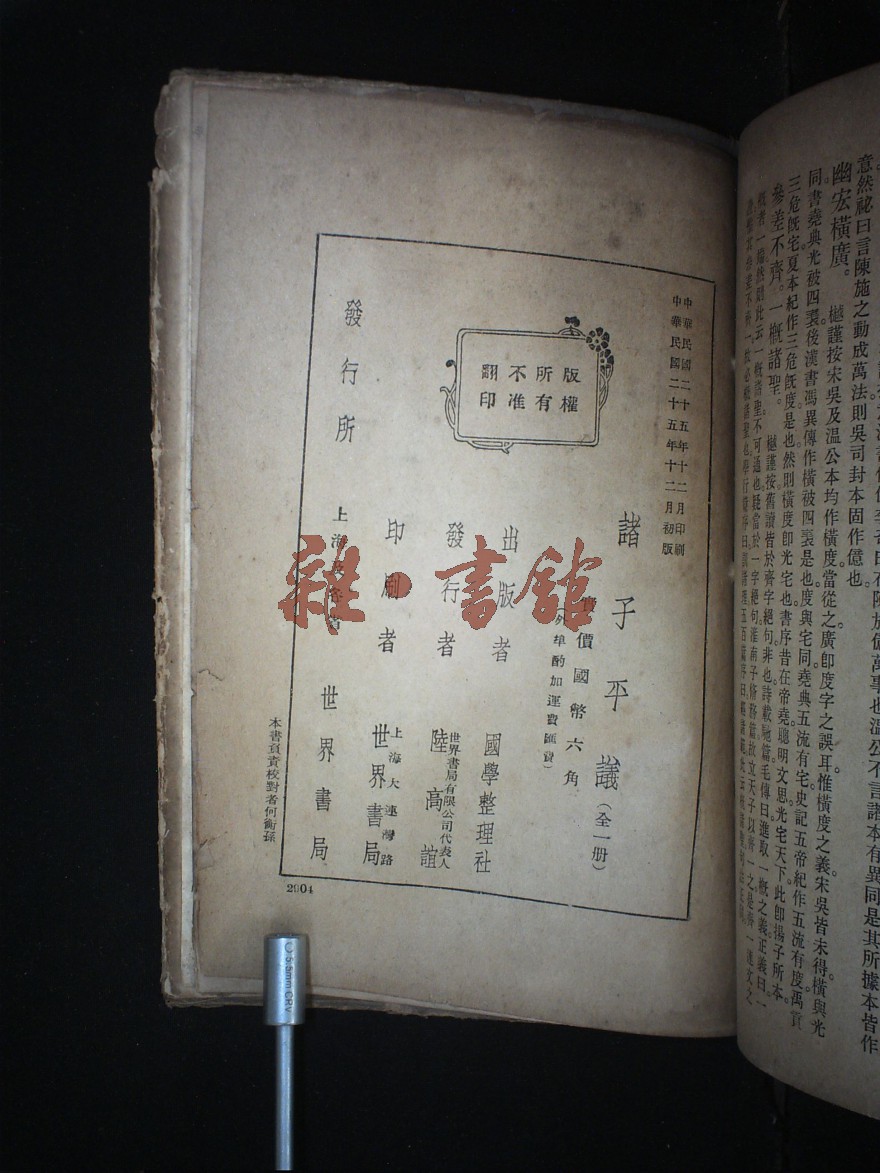 意然祕曰言陳施之動成萬法則吳司封本固作億也。
幽宏橫廣。 樾謹按宋吳及温公本均作橫度當從之廣卽度字之誤耳惟橫度之義宋吳皆未得橫與光
同書堯典光被四表後漢書馮異傳作橫被四表是也度與宅同堯典五流有宅史記五帝紀作五流有度禹貢
三危旣宅夏本紀作三危旣度是也然則橫度卽光宅也書序昔在帝堯聰明文思光宅天下此卽揚子所本。
參差不齊。一概諸聖。 樾謹按舊讀皆於齊字絕句非也詩載馳篇毛傳曰進取一概之義正義曰一
中華民國二十五年十二月印刷
中華民國二十五年十二月初版
版權
所有
不准
翻印
諸子平議(全一册)
價國幣六角
(外埠酌加運費匯費)
出版者 國學整理社
發行者 世界書局有限公司代表人 陸高誼
印刷者 上海大連灣路 世界書局
發行所 上海 世界書局
本書負責校對者何銜孫
2904
雜·書館
5.5mm CRV